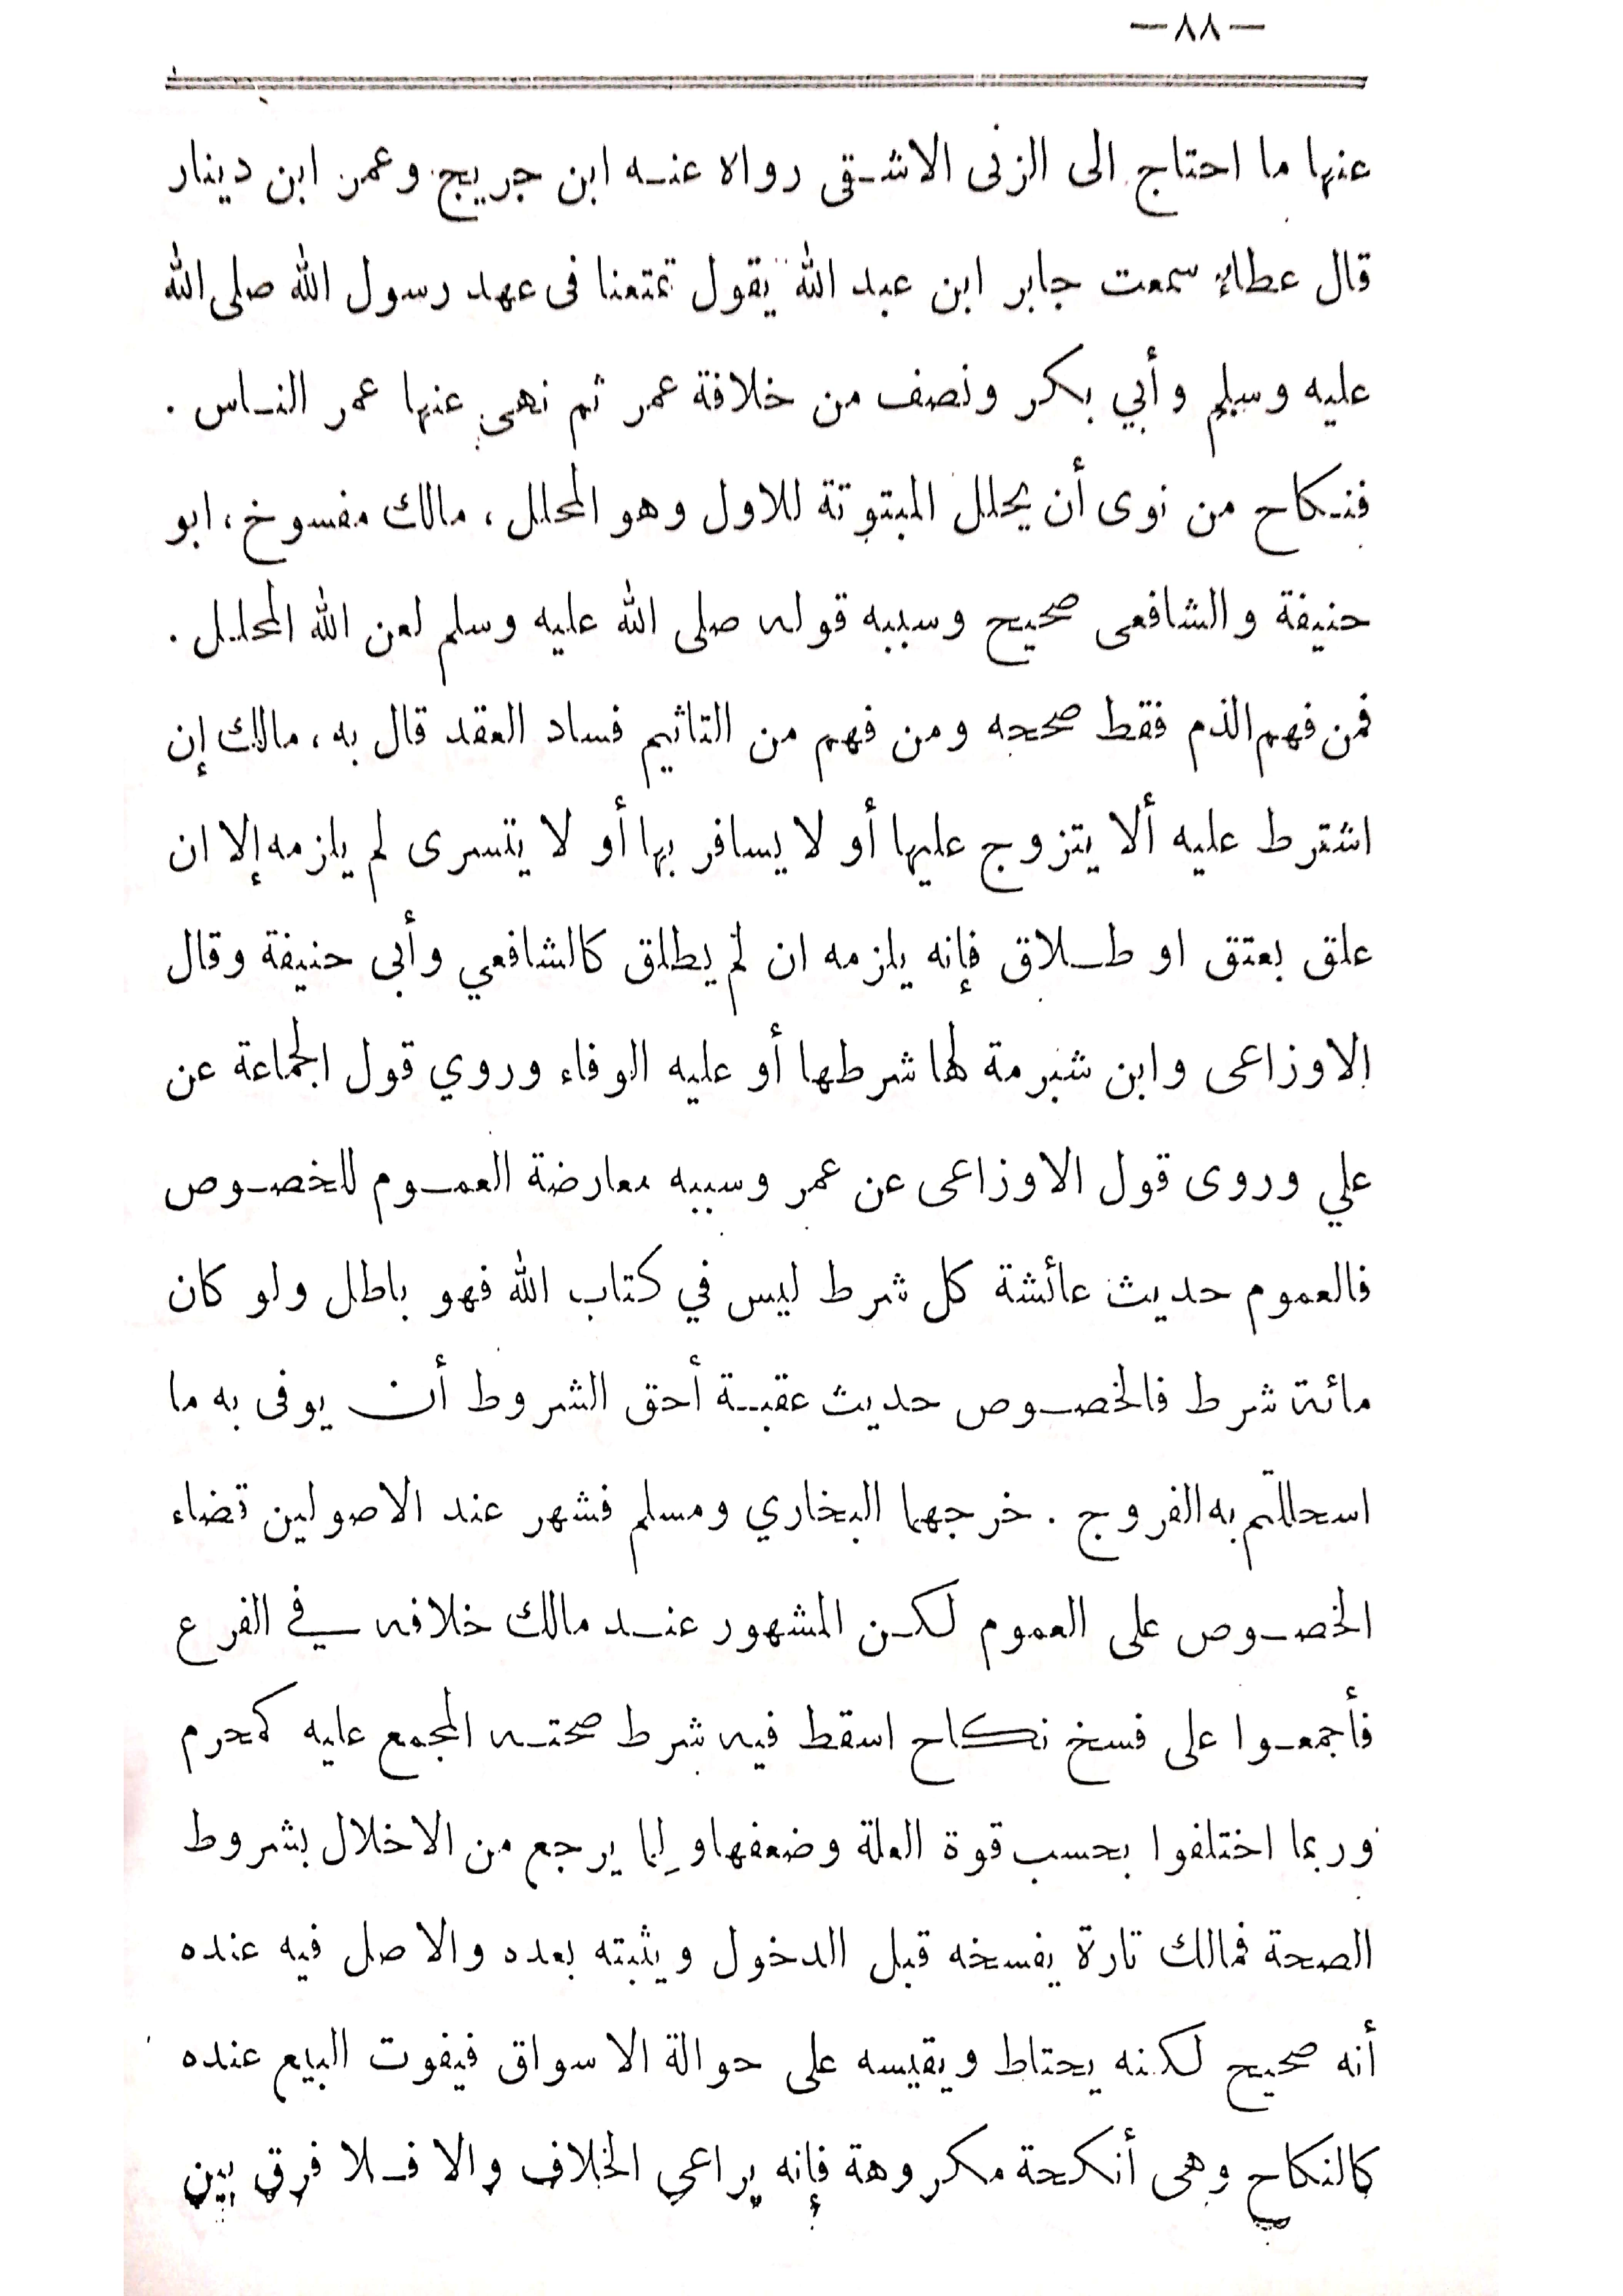 —٨٨—
عنها ما احتاج الى الزنى الا شقى رواه عنه ابن جريج وعمر ابن دينار
قال عطاء سمعت جابر ابن عبد الله يقول تمتعنا فى عهد رسول الله صلى الله
عليه وسلم وأبي بكر ونصف من خلافة عمر ثم نهى عنها عمر الناس .
فنكاح من نوى أن يحلل المبتوتة للاول وهو المحلل ، مالك مفسوخ ، ابو
حنيفة والشافعى صحيح وسببه قوله صلى الله عليه وسلم لعن الله المحلل .
فمن فهم الذم فقط صححه ومن فهم من التاثيم فساد العقد قال به ، مالك إن
اشترط عليه ألا يتزوج عليها أو لا يسافر بها أو لا يتسرى لم يلزمه إلا ان
علق بعتق او طلاق فإنه يلزمه ان لم يطلق كالشافعي وأبى حنيفة وقال
الاوزاعى وابن شبرمة لها شرطها أو عليه الوفاء وروي قول الجماعة عن
علي وروى قول الاوزاعى عن عمر وسببه معارضة العموم للخصوص
فالعموم حديث عائشة كل شرط ليس في كتاب الله فهو باطل ولو كان
مائة شرط فالخصوص حديث عقبة أحق الشروط أن يوفى به ما
اسحللتم به الفروج . خرجهما البخاري ومسلم فشهر عند الاصولين قضاء
الخصوص على العموم لكن المشهور عند مالك خلافه في الفرع
فأجمعوا على فسخ نكاح اسقط فيه شرط صحته المجمع عليه كمحرم
وربما اختلفوا بحسب قوة العلة وضعفها ولما يرجع من الاخلال بشروط
الصحة فمالك تارة يفسخه قبل الدخول ويثبته بعده والاصل فيه عنده
أنه صحيح لكنه يحتاط ويقيسه على حوالة الاسواق فيفوت البيع عنده
كالنكاح وهى أنكحة مكروهة فإنه يراعى الخلاف والا فلا فرق بين